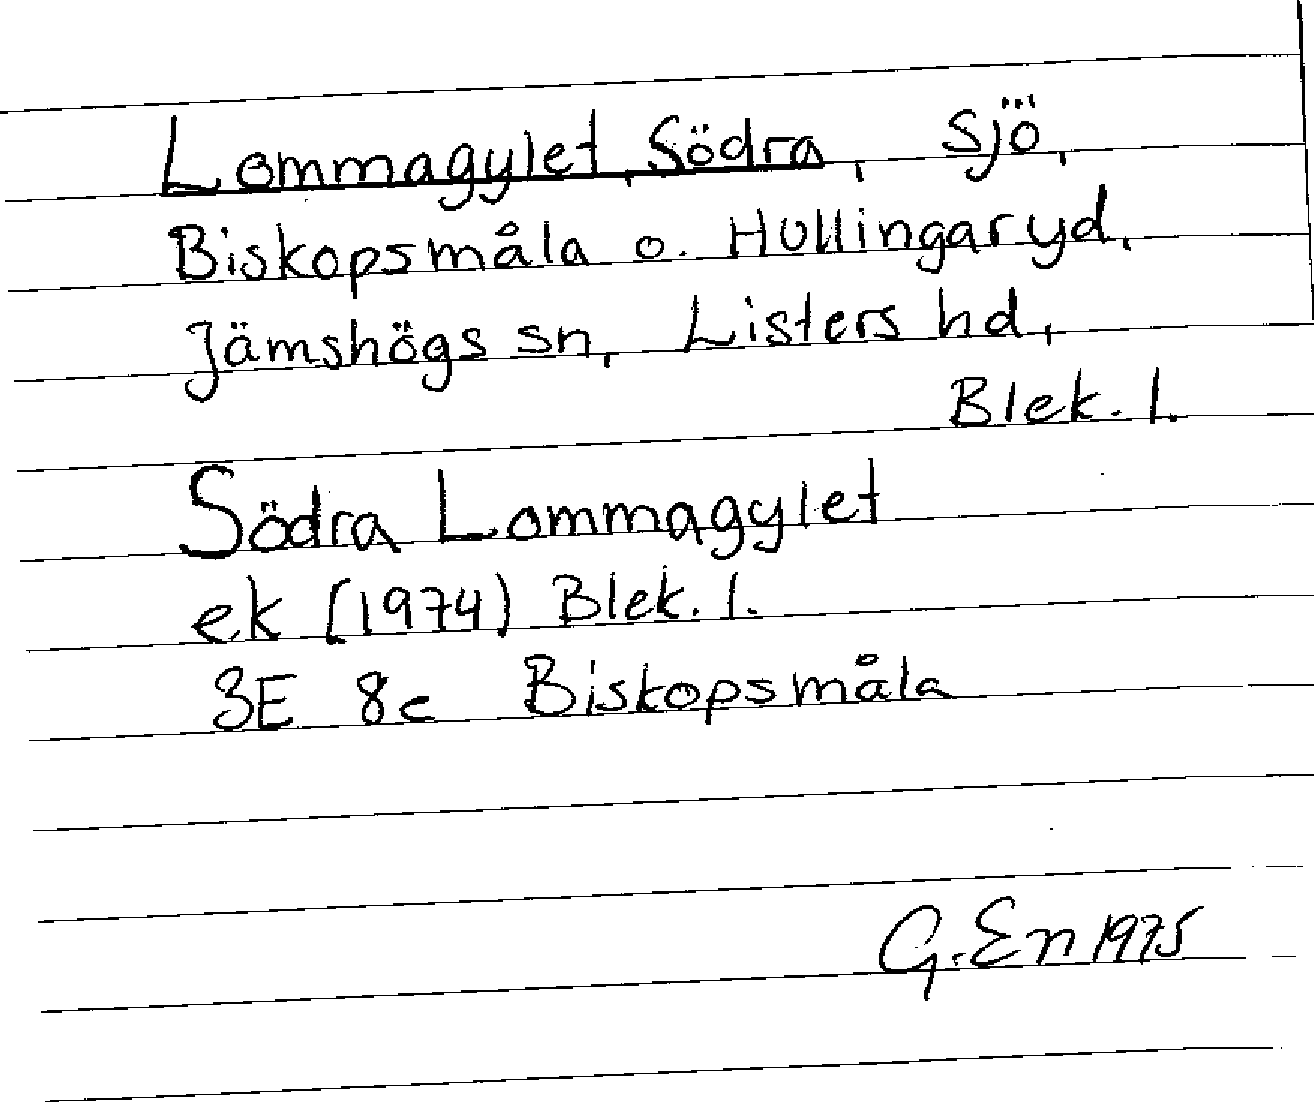 Lommagylet, Södra, sjö,
Biskopsmåla o. Hullingaryd,
Jämshögs sn, Listers hd,
Blek. l.
Södra Lommagylet
ek (1974) Blek. l.
3E 8c Biskopsmåla
G. En 1975